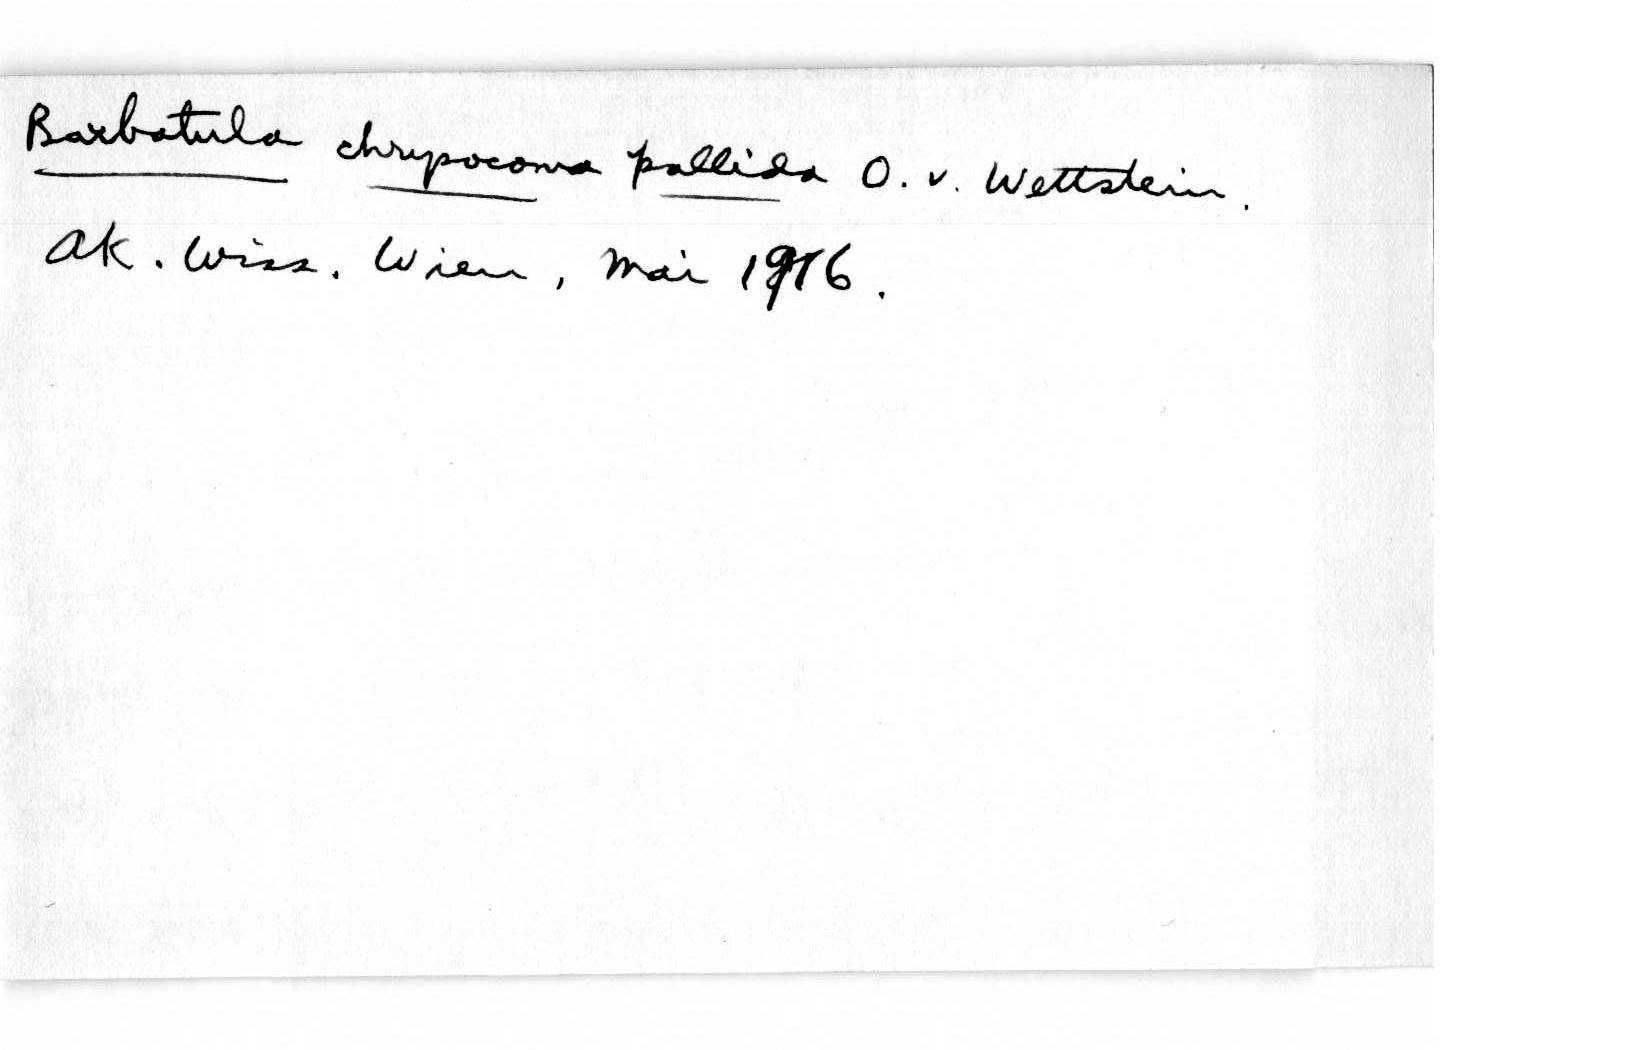 Barbatula chrysocoma pallida O. v. Wettstein.
Ak. Wiss. Wien, Mai 1916.